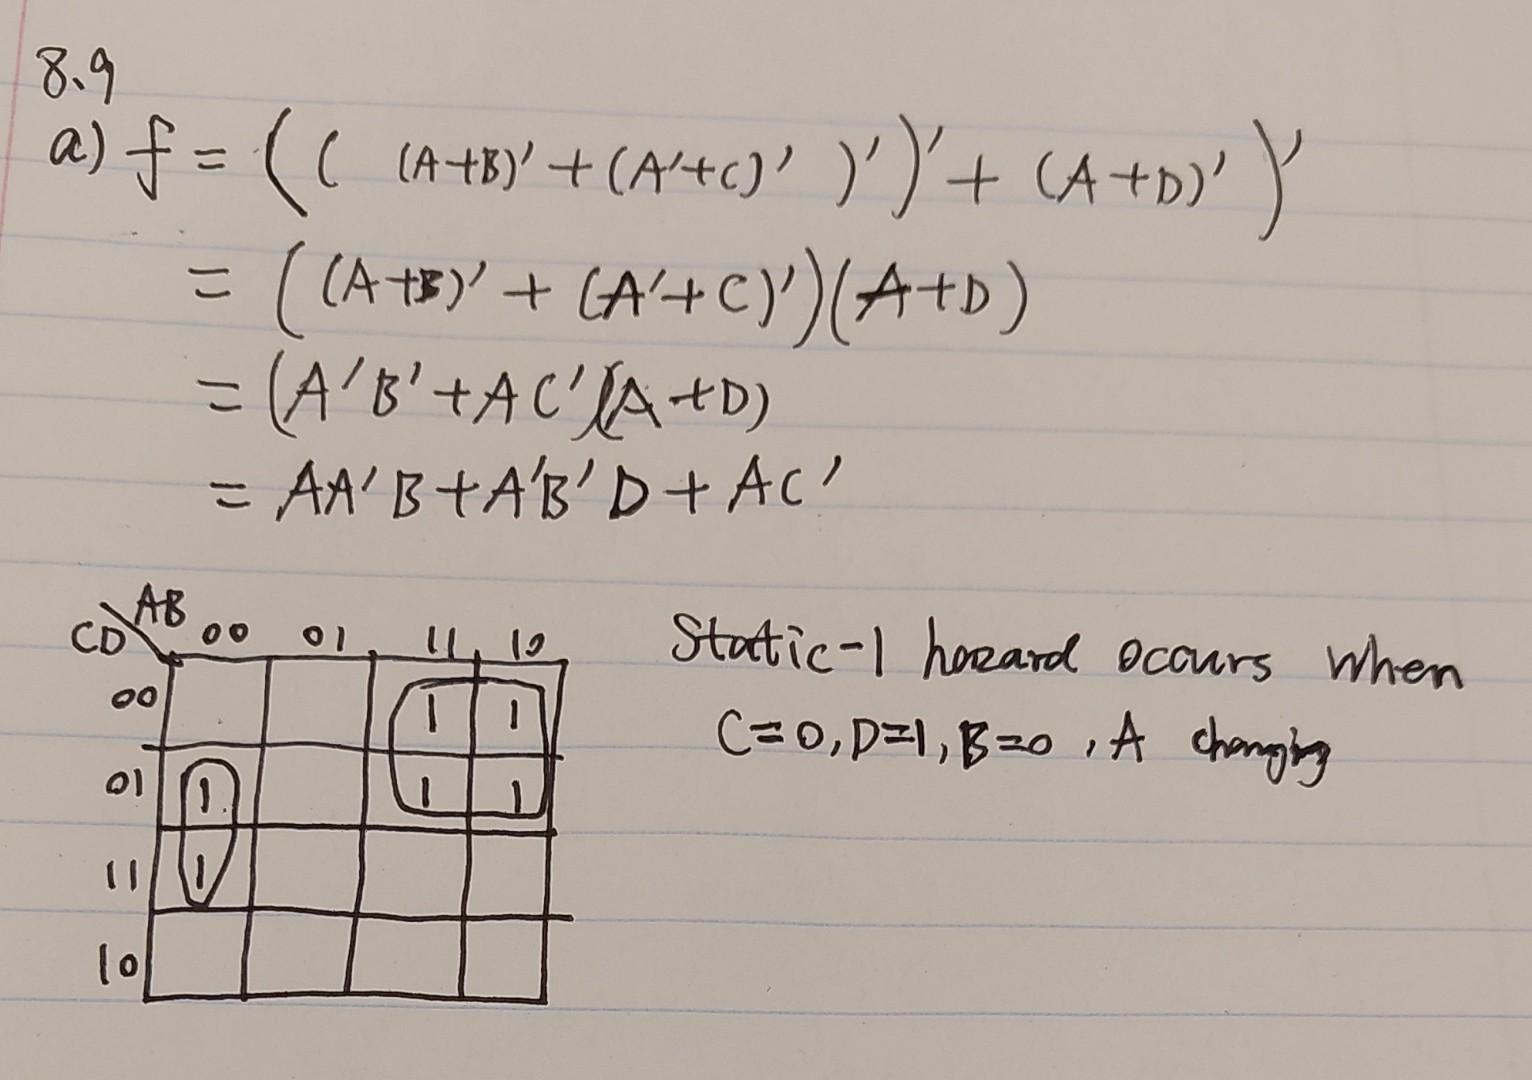 8.9
a) f = ( ( (A+B)' + (A'+C)' )' )' + (A+D)' )'
= ( (A+B)' + (A'+C)' ) (A+D)
= (A'B' + AC')(A+D)
= AA'B + A'B'D + AC'
AB
CD 00 01 11 10
00 1 1
01 1 1 1
11 1
10
Static-1 hazard occurs when
C=0, D=1, B=0, A changing